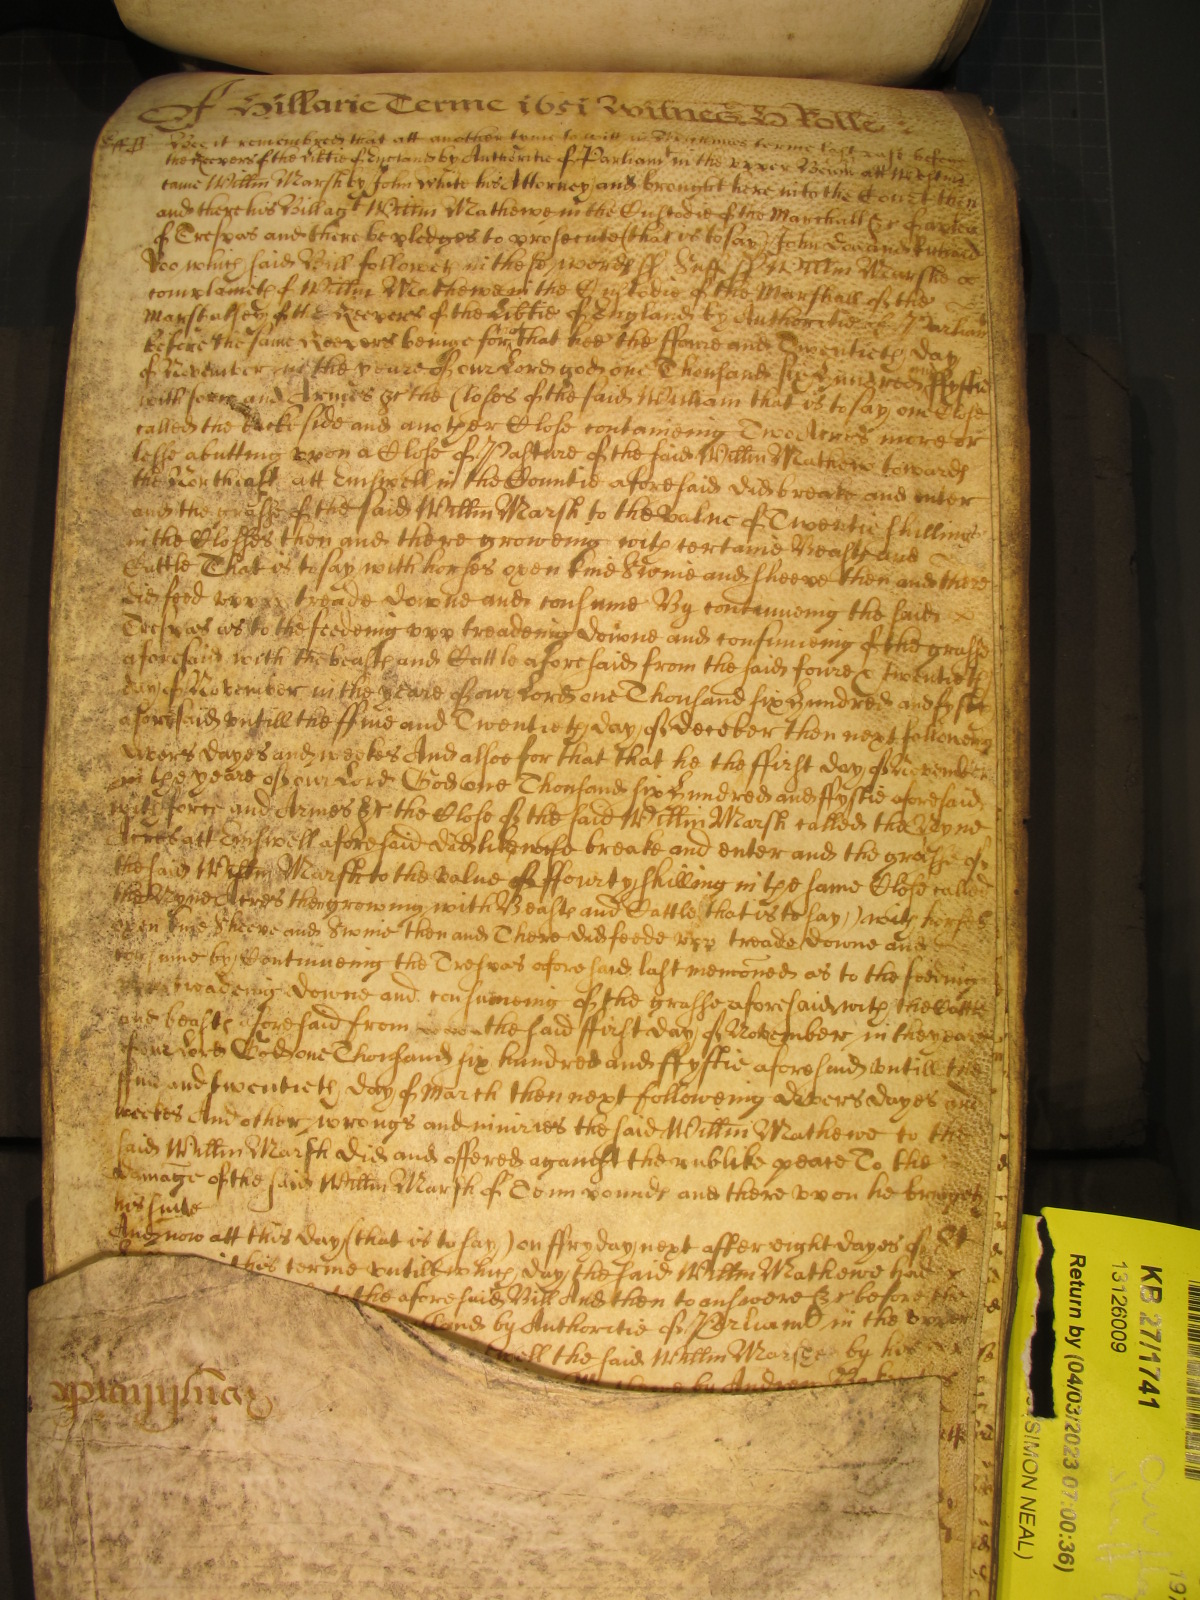 Of Hillarie Terme 1651 Witnes H Rolle
Suff ss Bee it remembred that att another tyme to witt in Michaelmas terme last past before
the Keepers of the libtie of England by Authoritie of Parliamt in the upper Bench att Westmr
came Willm Marsh by John White his Attorney and brought here into the Court then
and there his Bill agt Willm Mathewe in the Custodie of the Marshall &c of a plea
of Trespas and there be pledges to prosecute (that is to say) John Doe and Richard
Roo which said Bill followeth in these words ss Suff ss Willm Marshe
complaineth of Willm Mathewe in the Custodie of the Marshall of the
Marshalsey of the Keepers of the Libtie of England by Authoritie of Parliamt
before the same Keepers beinge for that hee the ffoure and Twentieth day
of November in the yeare of our Lord god one Thousand six hundred and ffyftie
with force and Armes &c the Closes of the said William that is to say one Close
called the backside and another Close conteineing Two Acres more or
lesse abutting upon a Close of Pasture of the said Willm Mathew towards
the Northeast att in the Countie aforesaid did breake and enter
and the grasse of the said Willm Marsh to the value of Twentie shillings
in the Closses then and there groweing with certaine Beasts and
Cattle That is to say with horses oxen kine Swine and sheepe then and there
did feed upp treade downe and consume By continueing the said
Trespas as to the feedeing upp treadeing downe and consumeing of the grasse
aforesaid with the beasts and Cattle aforesaid from the said foure & twentieth
day of November in the yeare of our Lord one Thousand six hundred and fyftie
aforesaid untill the ffive and Twentieth day of december then next following
divers dayes and weekes And alsoe for that that he the ffirst day of November
in the yeare of our Lord God one Thousand six hundred and ffyftie aforesaid
with force and Armes &c the Close of the said Willm Marsh called the Nyne
Acres att aforesaid did likewise breake and enter and the grasse of
the said Willm Marsh to the value of ffourty shilling in the same Close called
the Nyne Acres then growing with Beasts and Cattle (that is to say) with horses
oxen kine Sheepe and Swine then and There did feede upp treade downe and
consume by Continueing the Trespas aforesaid last menconed as to the feeding
treadeing downe and consumeing of the grasse aforesaid with the Cattle
and beasts aforesaid from the said ffirst day of November in the yeare
of our Lord God one Thousand six hundred and ffyftie aforesaid untill the
ffive and twentieth day of March then next followeing divers dayes and
weekes And other wrongs and iniuries the said Willm Mathewe to the
said Willm Marsh did and offered against the publike peace To the
damage of the said Willm Marsh of Tenn pounds and there upon he bringeth
his suite
And now att this day (that is to say) on ffryday next after eight dayes of St
this terme untill which day the said Willm Mathewe had
to the aforesaid Bill And then to answere &c before the
by Authoritie of Parliamt in the upper
the said Willm Marshe by his
by Andrew
KB 27/1741
13126009
Return by (04/03/2023 07:00:36)
SIMON NEAL)